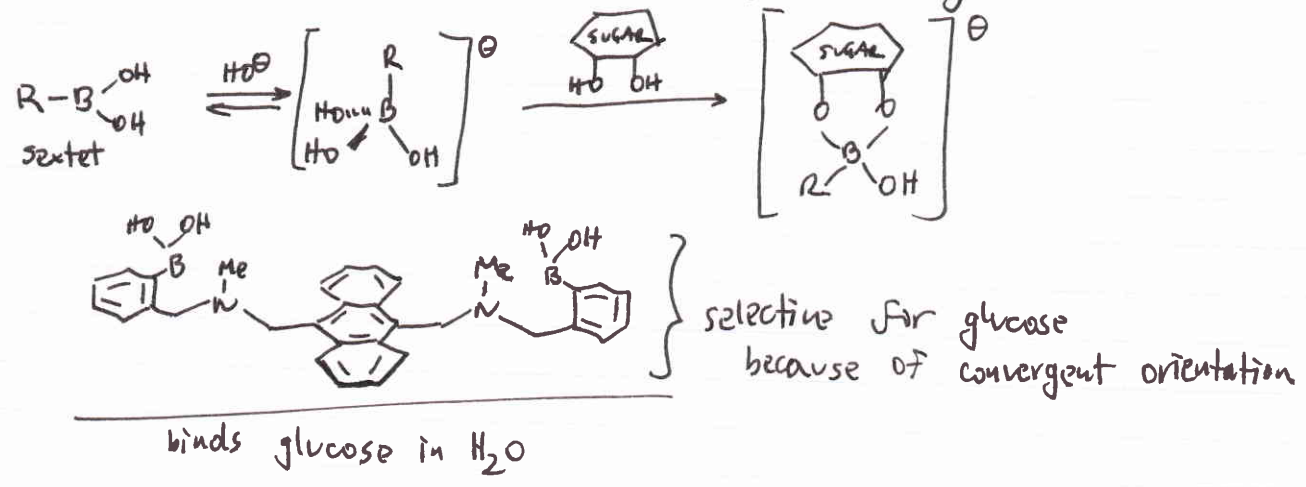 R-B OH OH
sextet
HO⊖
[R HO B HO OH]⊖
SUGAR
HO OH
[SUGAR O O B R OH]⊖
HO OH B Me N
Me N HO OH B
selective for glucose
because of convergent orientation
binds glucose in H₂O